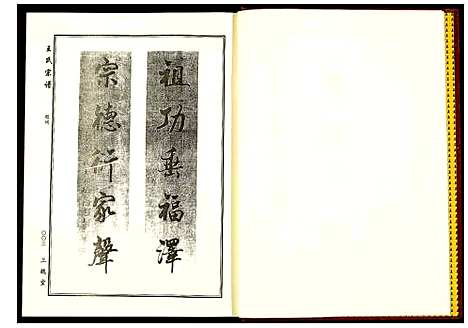 祖功垂福澤
宗德衍家聲
王氏宗譜
題詞
〇〇三
三槐堂